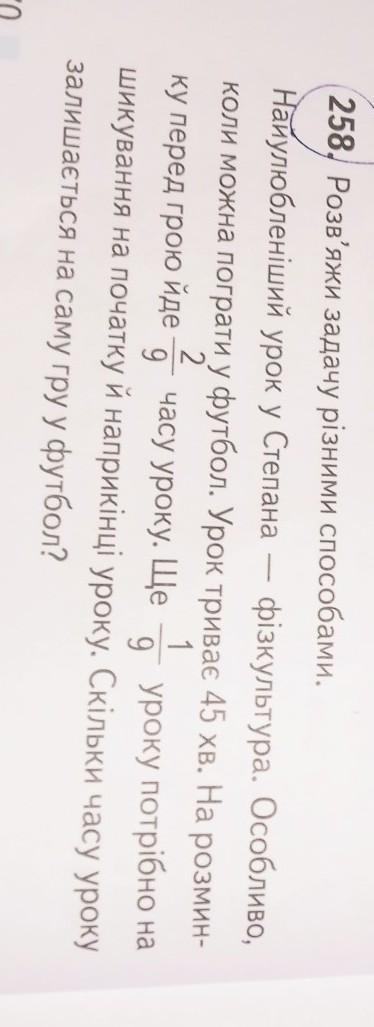 258. Розв'яжи задачу різними способами.
Найулюбленіший урок у Степана — фізкультура. Особливо,
коли можна пограти у футбол. Урок триває 45 хв. На розмин-
ку перед грою йде 2/9 часу уроку. Ще 1/9 уроку потрібно на
шикування на початку й наприкінці уроку. Скільки часу уроку
залишається на саму гру у футбол?